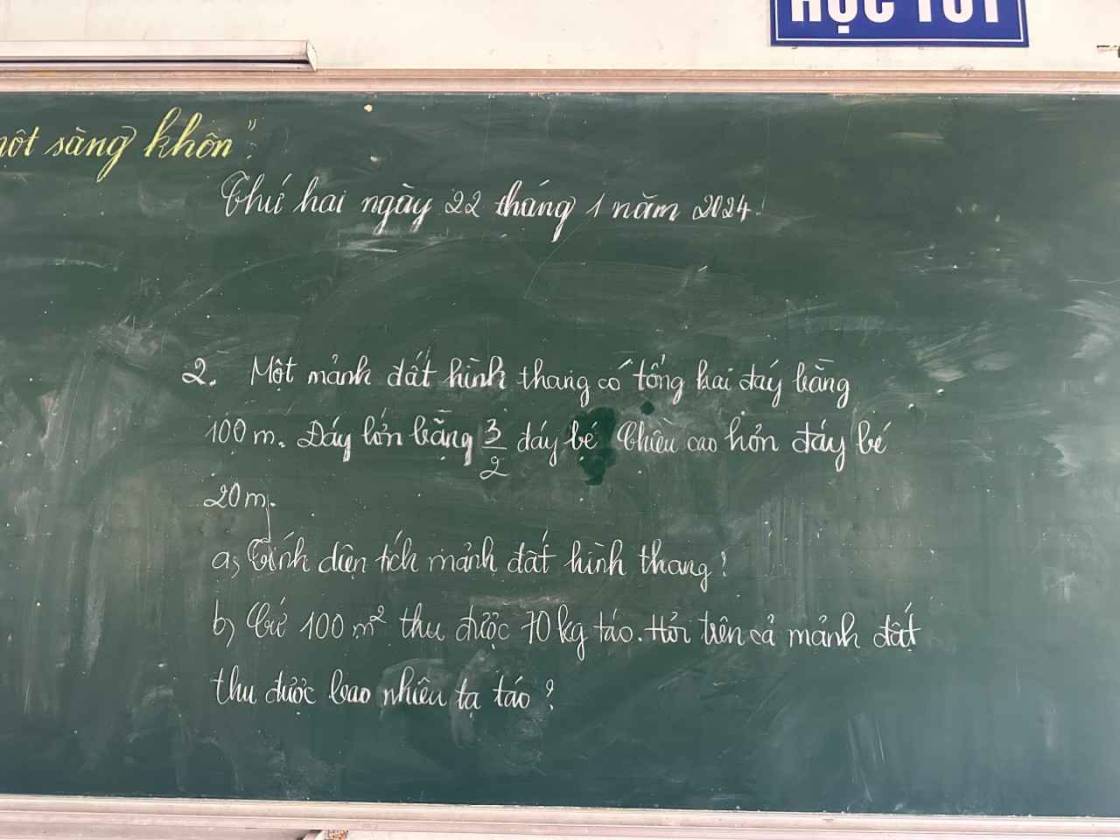 HỌC TỐT
một sàng khôn".
Thứ hai ngày 22 tháng 1 năm 2024.
2. Một mảnh đất hình thang có tổng hai đáy bằng
100 m. Đáy lớn bằng 3/2 đáy bé Chiều cao hơn đáy bé
20 m.
a, Tính diện tích mảnh đất hình thang?
b, Cứ 100 m² thu được 70 kg táo. Hỏi trên cả mảnh đất
thu được bao nhiêu tạ táo?